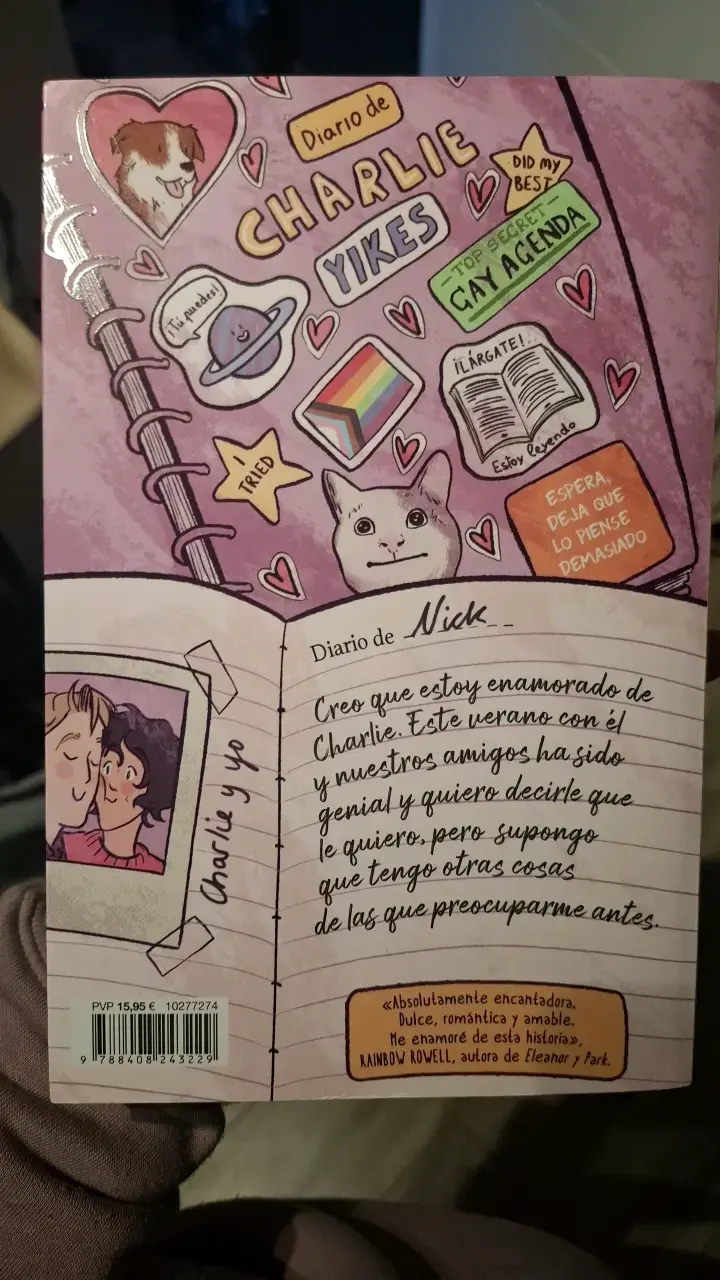 Diario de
CHARLIE
YIKES
DID MY
BEST
- TOP SECRET -
GAY AGENDA
¡Tú puedes!
¡LÁRGATE!
Estoy leyendo
I
TRIED
ESPERA,
DEJA QUE
LO PIENSE
DEMASIADO
Diario de Nick
Creo que estoy enamorado de
Charlie. Este verano con él
y nuestros amigos ha sido
genial y quiero decirle que
le quiero, pero supongo
que tengo otras cosas
de las que preocuparme antes.
Charlie y yo
PVP 15,95 € 10277274
9 788408 243229
«Absolutamente encantadora.
Dulce, romántica y amable.
Me enamoré de esta historia»,
RAINBOW ROWELL, autora de Eleanor y Park.